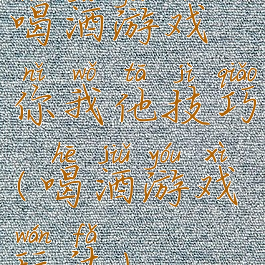 喝酒游戏
nǐ wǒ tā jì qiǎo
你我他技巧
hē jiǔ yóu xì
(喝酒游戏
wán fǎ